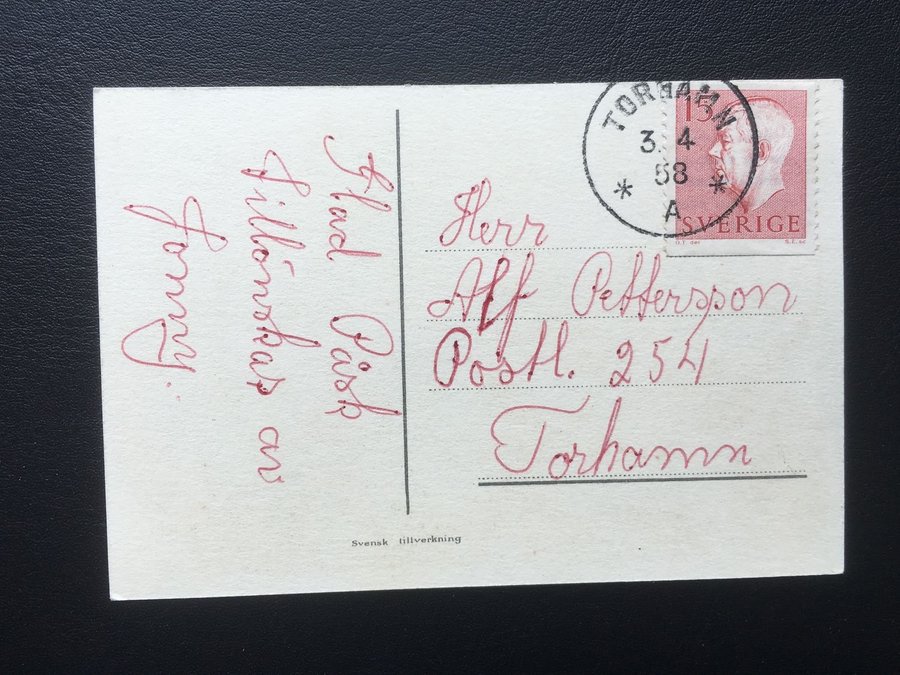 Glad Påsk
Tillönskas av
Jonny.
TORHAMN
3. 4
58
* *
A
15
SVERIGE
Herr
Alf Pettersson
Postl. 254
Torhamn
Svensk tillverkning